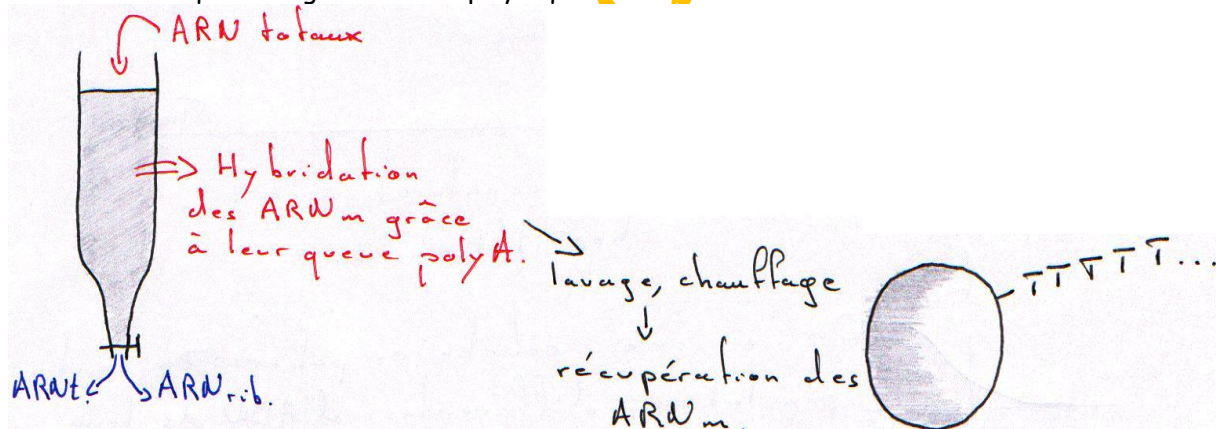 ARN totaux
Hybridation
des ARNm grâce
à leur queue polyA.
lavage, chauffage
récupération des
ARNm.
TTTTT...
ARNt.
ARNrib.